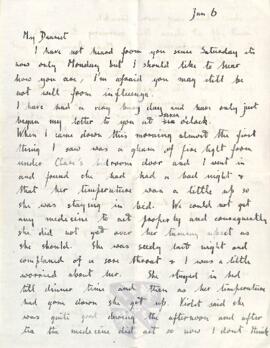 Jan 6
My Dearest
I have not heard from you since Saturday its
now only Monday but I should like to hear
how you are, I'm afraid you may still be
not well from influenza.
I have had a very busy day and have only just
began my letter to you at seven o'clock.
When I came down this morning almost the first
thing I saw was a gleam of fire light from
under Clare's bedroom door and I went in
and found she had had a bad night &
that her temperature was a little up so
she was staying in bed. We could not get
any medicine to act properly and consequently
she did not get over her tummy upset as
she should. She was seedy last night and
complained of a sore throat & I was a little
worried about her. She stayed in bed
till dinner time and then as her temperature
had gone down she got up. Violet said she
was quite good during the afternoon and after
tea the medicine did act so now I dont think